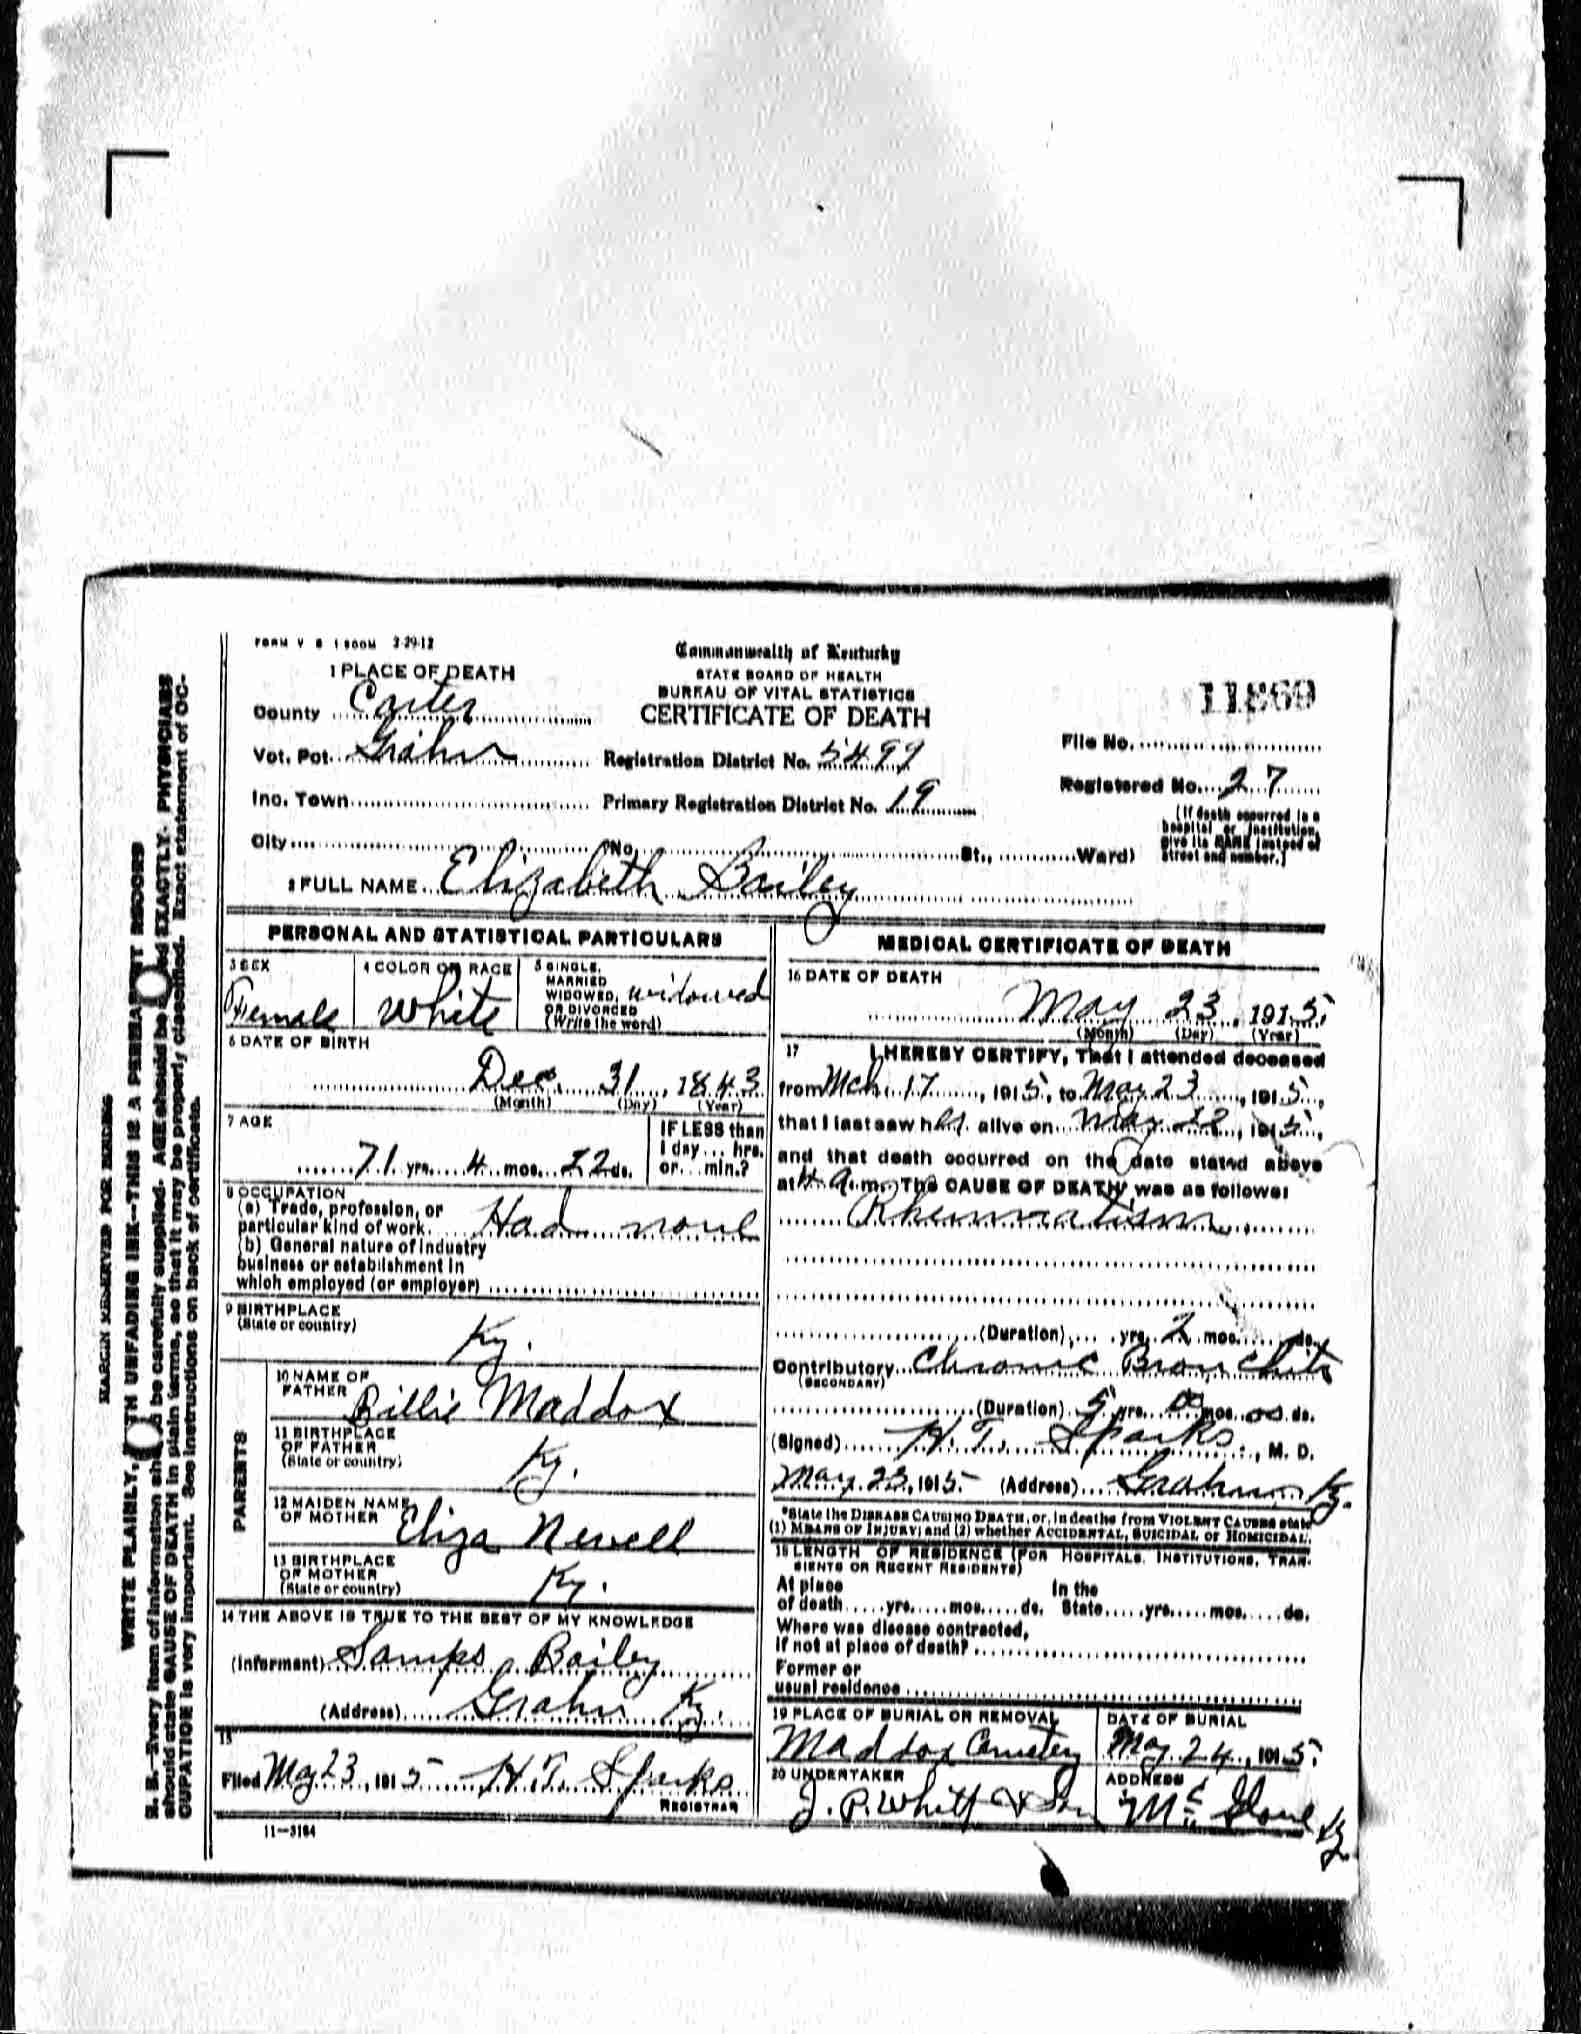 FORM V S 1 500M 2-29-12
Commonwealth of Kentucky
1 PLACE OF DEATH
STATE BOARD OF HEALTH
BUREAU OF VITAL STATISTICS
County Carter
CERTIFICATE OF DEATH
11869
File No.
Vot. Pct. Grahn Registration District No. 5499
Registered No. 27
Inc. Town Primary Registration District No. 19
(If death occurred in a
hospital or institution,
give its NAME instead of
street and number.)
City (No. St., Ward)
2 FULL NAME Elizabeth Bailey
PERSONAL AND STATISTICAL PARTICULARS
3 SEX
Female
4 COLOR OR RACE
White
5 SINGLE,
MARRIED
WIDOWED, widowed
OR DIVORCED
(Write the word)
6 DATE OF BIRTH
Dec. 31, 1843
(Month) (Day) (Year)
7 AGE
71 yrs. 4 mos. 22 ds.
IF LESS than
1 day... hrs.
or... min.?
8 OCCUPATION
(a) Trade, profession, or
particular kind of work. Had none
(b) General nature of industry
business or establishment in
which employed (or employer)
9 BIRTHPLACE
(State or country)
Ky.
PARENTS
10 NAME OF
FATHER Billie Maddox
11 BIRTHPLACE
OF FATHER
(State or country)
Ky.
12 MAIDEN NAME
OF MOTHER Eliza Newell
13 BIRTHPLACE
OF MOTHER
(State or country) Ky.
14 THE ABOVE IS TRUE TO THE BEST OF MY KNOWLEDGE
(Informant) Samps Bailey
(Address) Grahn Ky.
15
Filed May 23, 1915 H. T. Sparks
REGISTRAR
11-3184
MEDICAL CERTIFICATE OF DEATH
16 DATE OF DEATH
May 23, 1915
(Month) (Day) (Year)
17 I HEREBY CERTIFY, That I attended deceased
from Mch. 17, 1915, to May 23, 1915,
that I last saw her alive on May 22, 1915,
and that death occurred on the date stated above
at 4 A. m. The CAUSE OF DEATH* was as follows:
Rheumatism
(Duration) yrs. 2 mos. ds.
Contributory Chronic Bronchits
(SECONDARY)
(Duration) 5 yrs. 00 mos. 00 ds.
(Signed) H. T. Sparks, M. D.
May 23, 1915 (Address) Grahn Ky.
*State the DISEASE CAUSING DEATH, or, in deaths from VIOLENT CAUSES state
(1) MEANS OF INJURY; and (2) whether ACCIDENTAL, SUICIDAL or HOMICIDAL.
18 LENGTH OF RESIDENCE (FOR HOSPITALS, INSTITUTIONS, TRAN-
SIENTS OR RECENT RESIDENTS)
At place In the
of death yrs. mos. ds. State yrs. mos. ds.
Where was disease contracted,
if not at place of death?
Former or
usual residence
19 PLACE OF BURIAL OR REMOVAL
Maddox Cemetery
DATE OF BURIAL
May 24, 1915
20 UNDERTAKER
J. P. Whitt & Son
ADDRESS
Mc Glone Ky.
MARGIN RESERVED FOR BINDING
WRITE PLAINLY, WITH UNFADING INK—THIS IS A PERMANENT RECORD
N. B.—Every item of information should be carefully supplied. AGE should be stated EXACTLY. PHYSICIANS
should state CAUSE OF DEATH in plain terms, so that it may be properly classified. Exact statement of OC-
CUPATION is very important. See instructions on back of certificate.